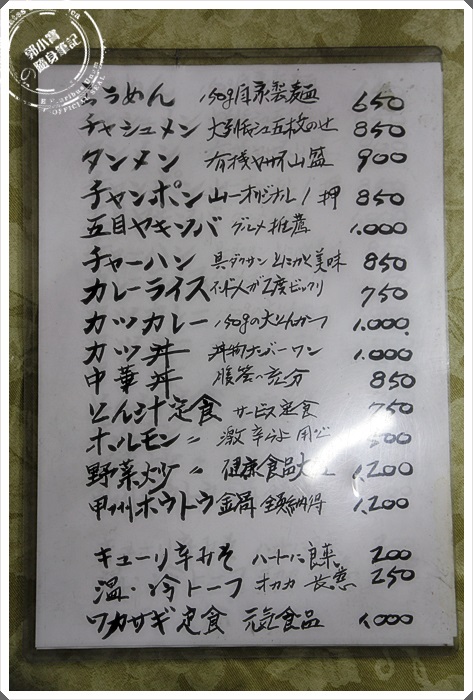 郭小寶
の隨身筆記
らうめん 150g自家製麺 650
チャシュメン 大判チャシュ五枚のせ 850
タンメン 有機ヤサイ山盛 900
チャンポン 山一オリジナル1押 850
五目ヤキソバ グルメ推薦 1.000
チャーハン 具ダクサン とにかく美味 850
カレーライス インド人が2度ビックリ 750
カツカレー 150gの大とんかつ 1.000
カツ丼 丼物ナンバーワン 1.000
中華丼 腹答へ充分 850
とん汁定食 サービス定食 750
ホルモン〃 激辛 用心
野菜炒〃 健康食品 1.200
甲州ホウトウ鍋 全員納得 1.200
キューリ辛みそ ハートに良菜 200
温・冷トーフ 250
ワカサギ定食 元気食品 1.000